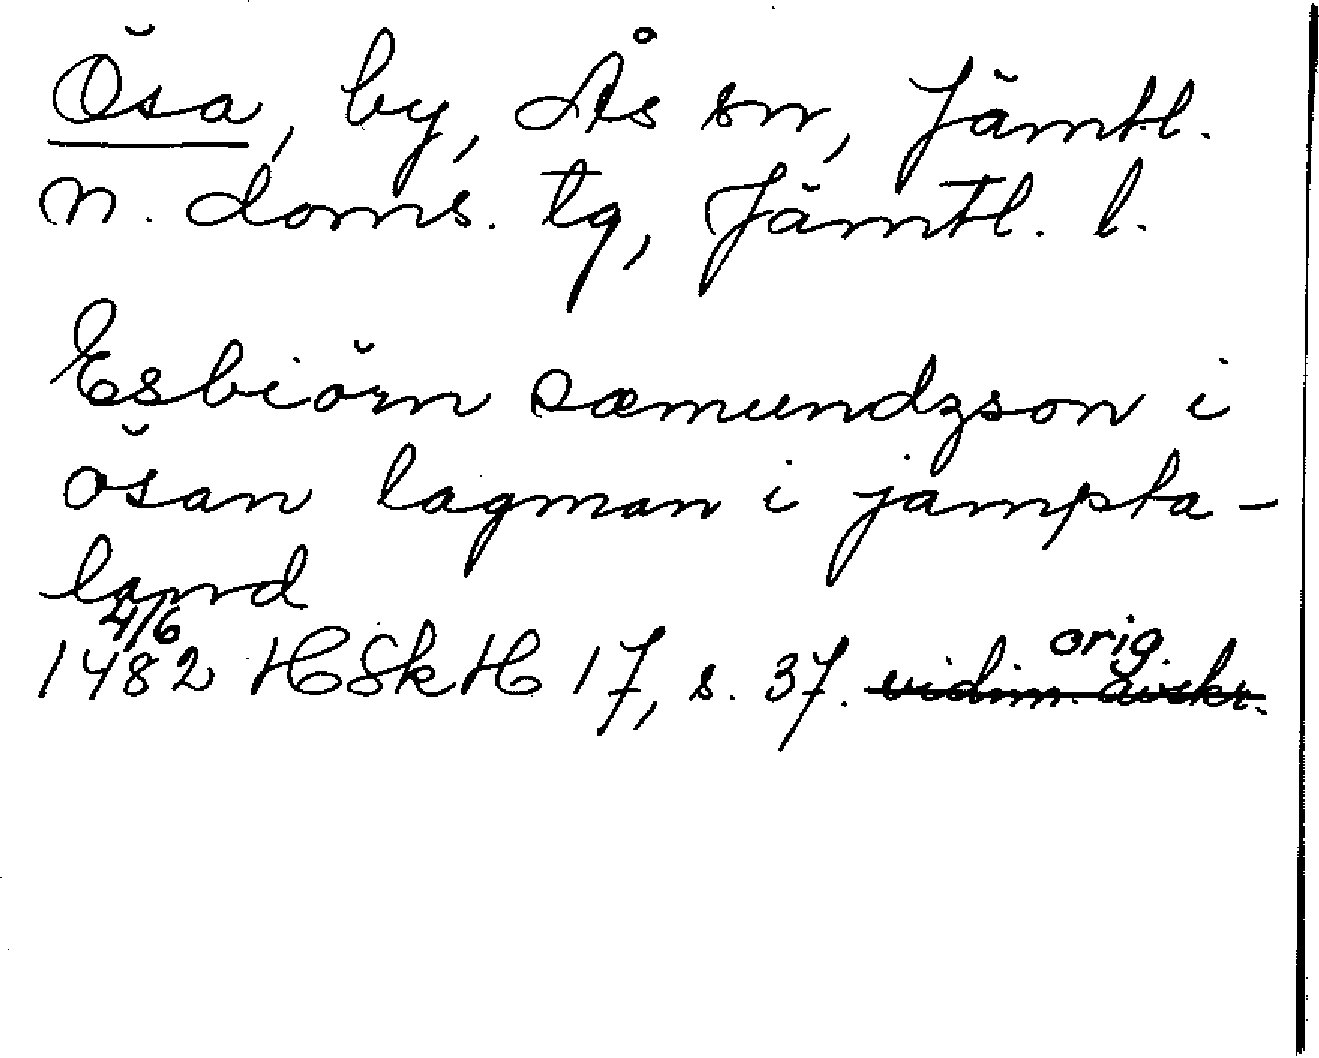 Ösa, by, Ås sn, Jämtl.
n. doms. tg, Jämtl. l.
Esbiörn sæmundzson i
ösan lagman i jampta-
land
4/6
1482 HSkH 17, s. 37. vidim. avskr. orig.